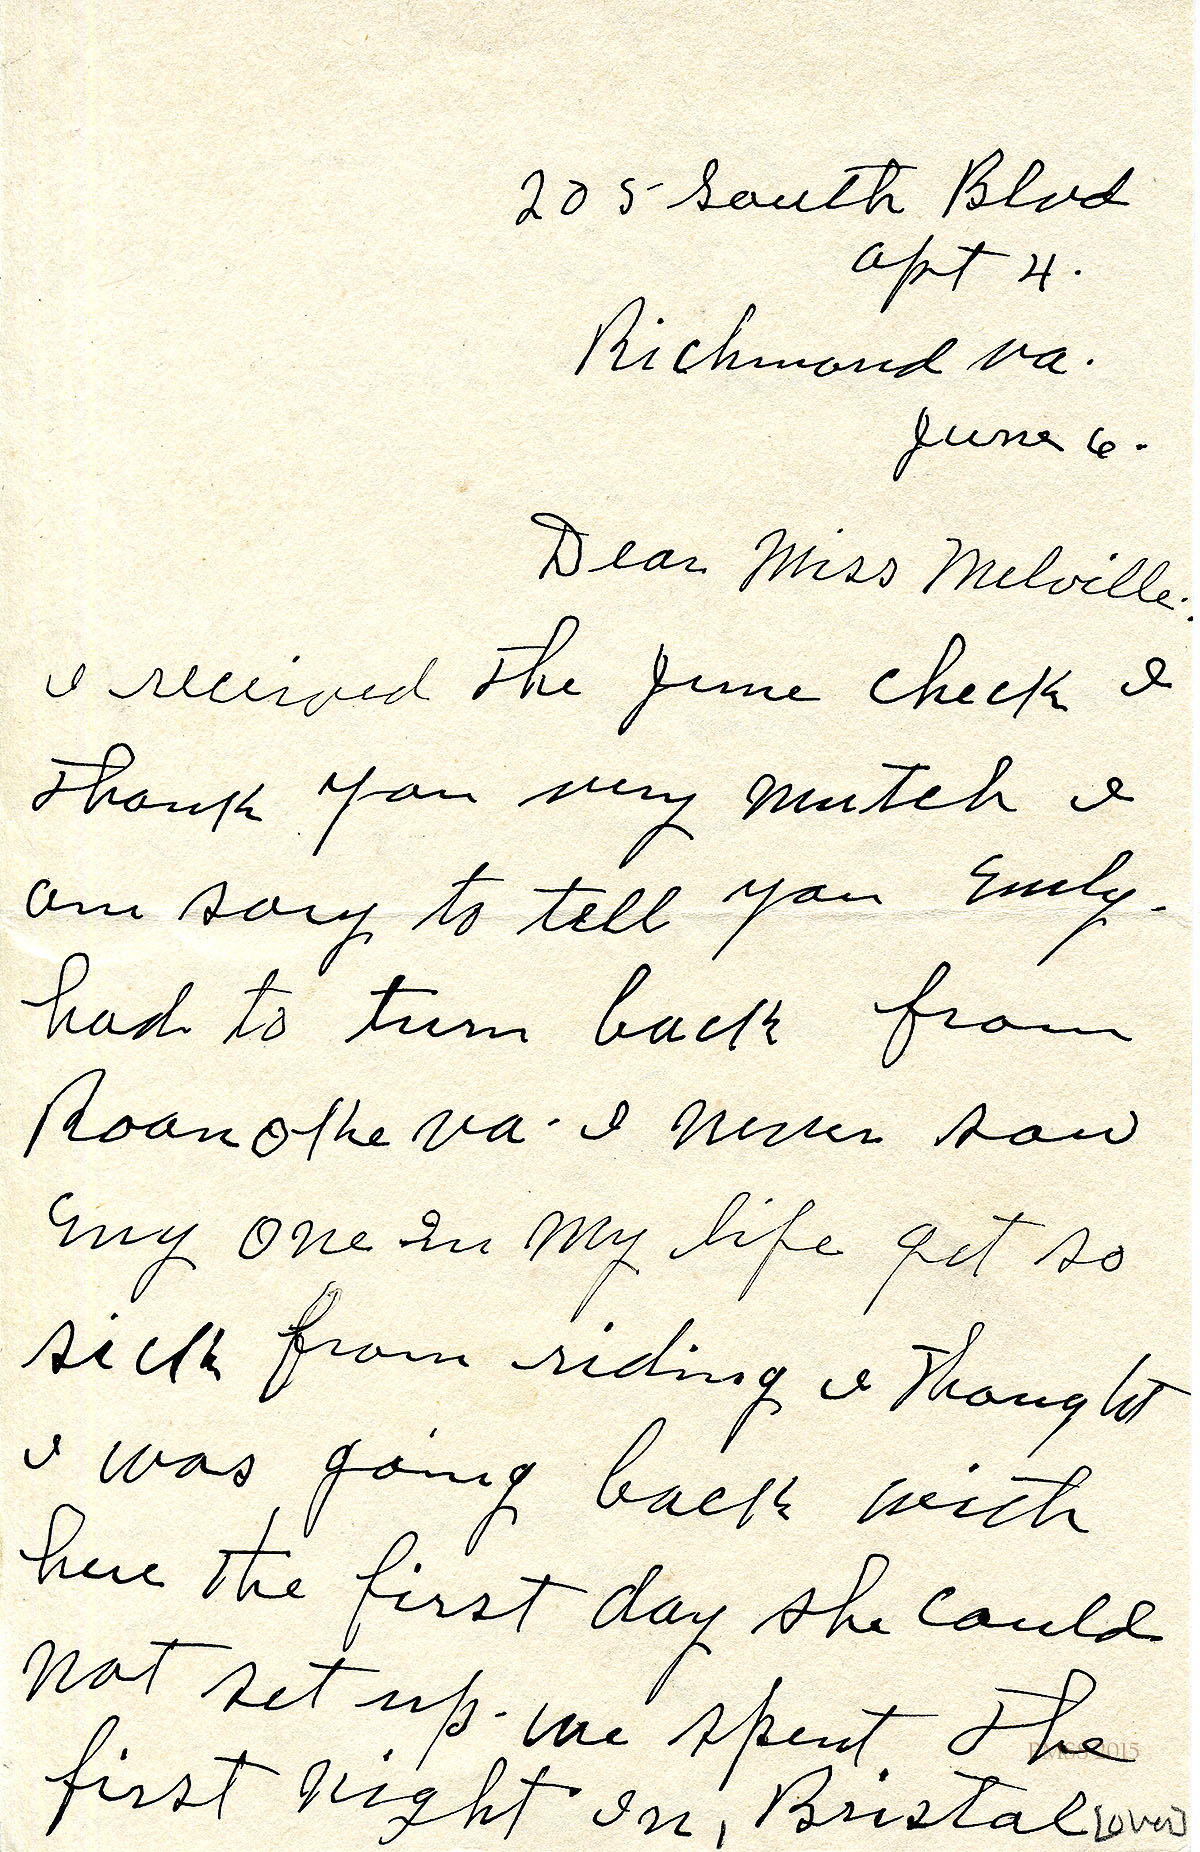 205 South Blvd
apt 4.
Richmond va.
June 6.
Dear Miss Melville:
I received the June check I
thank you very mutch I
am sory to tell you Emily.
had to turn back from
Roanoke va. I never saw
Eny one In my life get so
sick from riding I thought
I was going back with
here the first day she could
not set up. we spent the
first night In, Bristal [over]
PMSS 2015